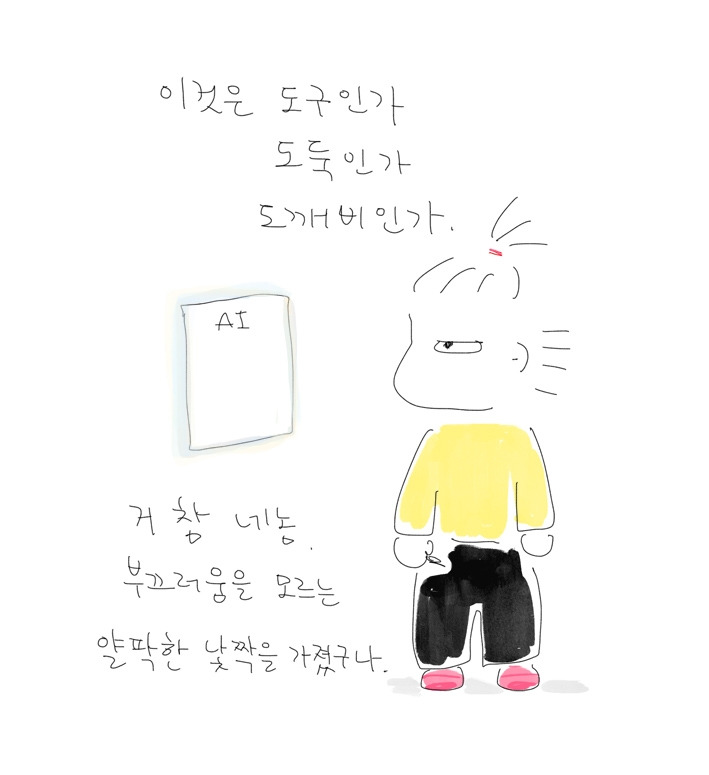 이것은 도구인가
도둑인가
도깨비인가.
AI
거 참 네놈.
부끄러움을 모르는
얄팍한 낯짝을 가졌구나.